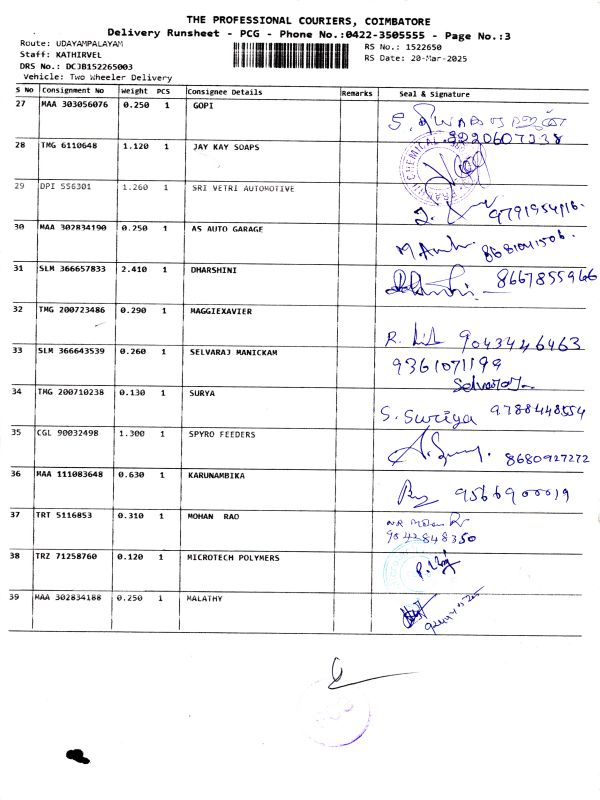 THE PROFESSIONAL COURIERS, COIMBATORE
Delivery Runsheet - PCG - Phone No.:0422-3505555 - Page No.:3
Route: UDAYAMPALAYAM
Staff: KATHIRVEL
DRS No.: DCJB152265003
Vehicle: Two Wheeler Delivery
RS No.: 1522650
RS Date: 20-Mar-2025
S No Consignment No Weight PCS Consignee Details Remarks Seal & Signature
27 MAA 303056076 0.250 1 GOPI
8220607338
28 TMG 6110648 1.120 1 JAY KAY SOAPS
29 DPI 556301 1.260 1 SRI VETRI AUTOMOTIVE
30 MAA 302834190 0.250 1 AS AUTO GARAGE
8681041506.
31 SLM 366657833 2.410 1 DHARSHINI 8667855966
32 TMG 200723486 0.290 1 MAGGIEXAVIER
9043446463
33 SLM 366643539 0.260 1 SELVARAJ MANICKAM 9361071199
34 TMG 200710238 0.130 1 SURYA
S. Suriya 9788448554
35 CGL 90032498 1.300 1 SPYRO FEEDERS
8680927272
36 MAA 111083648 0.630 1 KARUNAMBIKA
9566900019
37 TRT 5116853 0.310 1 MOHAN RAO
9042848350
38 TRZ 71258760 0.120 1 MICROTECH POLYMERS
39 MAA 302834188 0.250 1 MALATHY